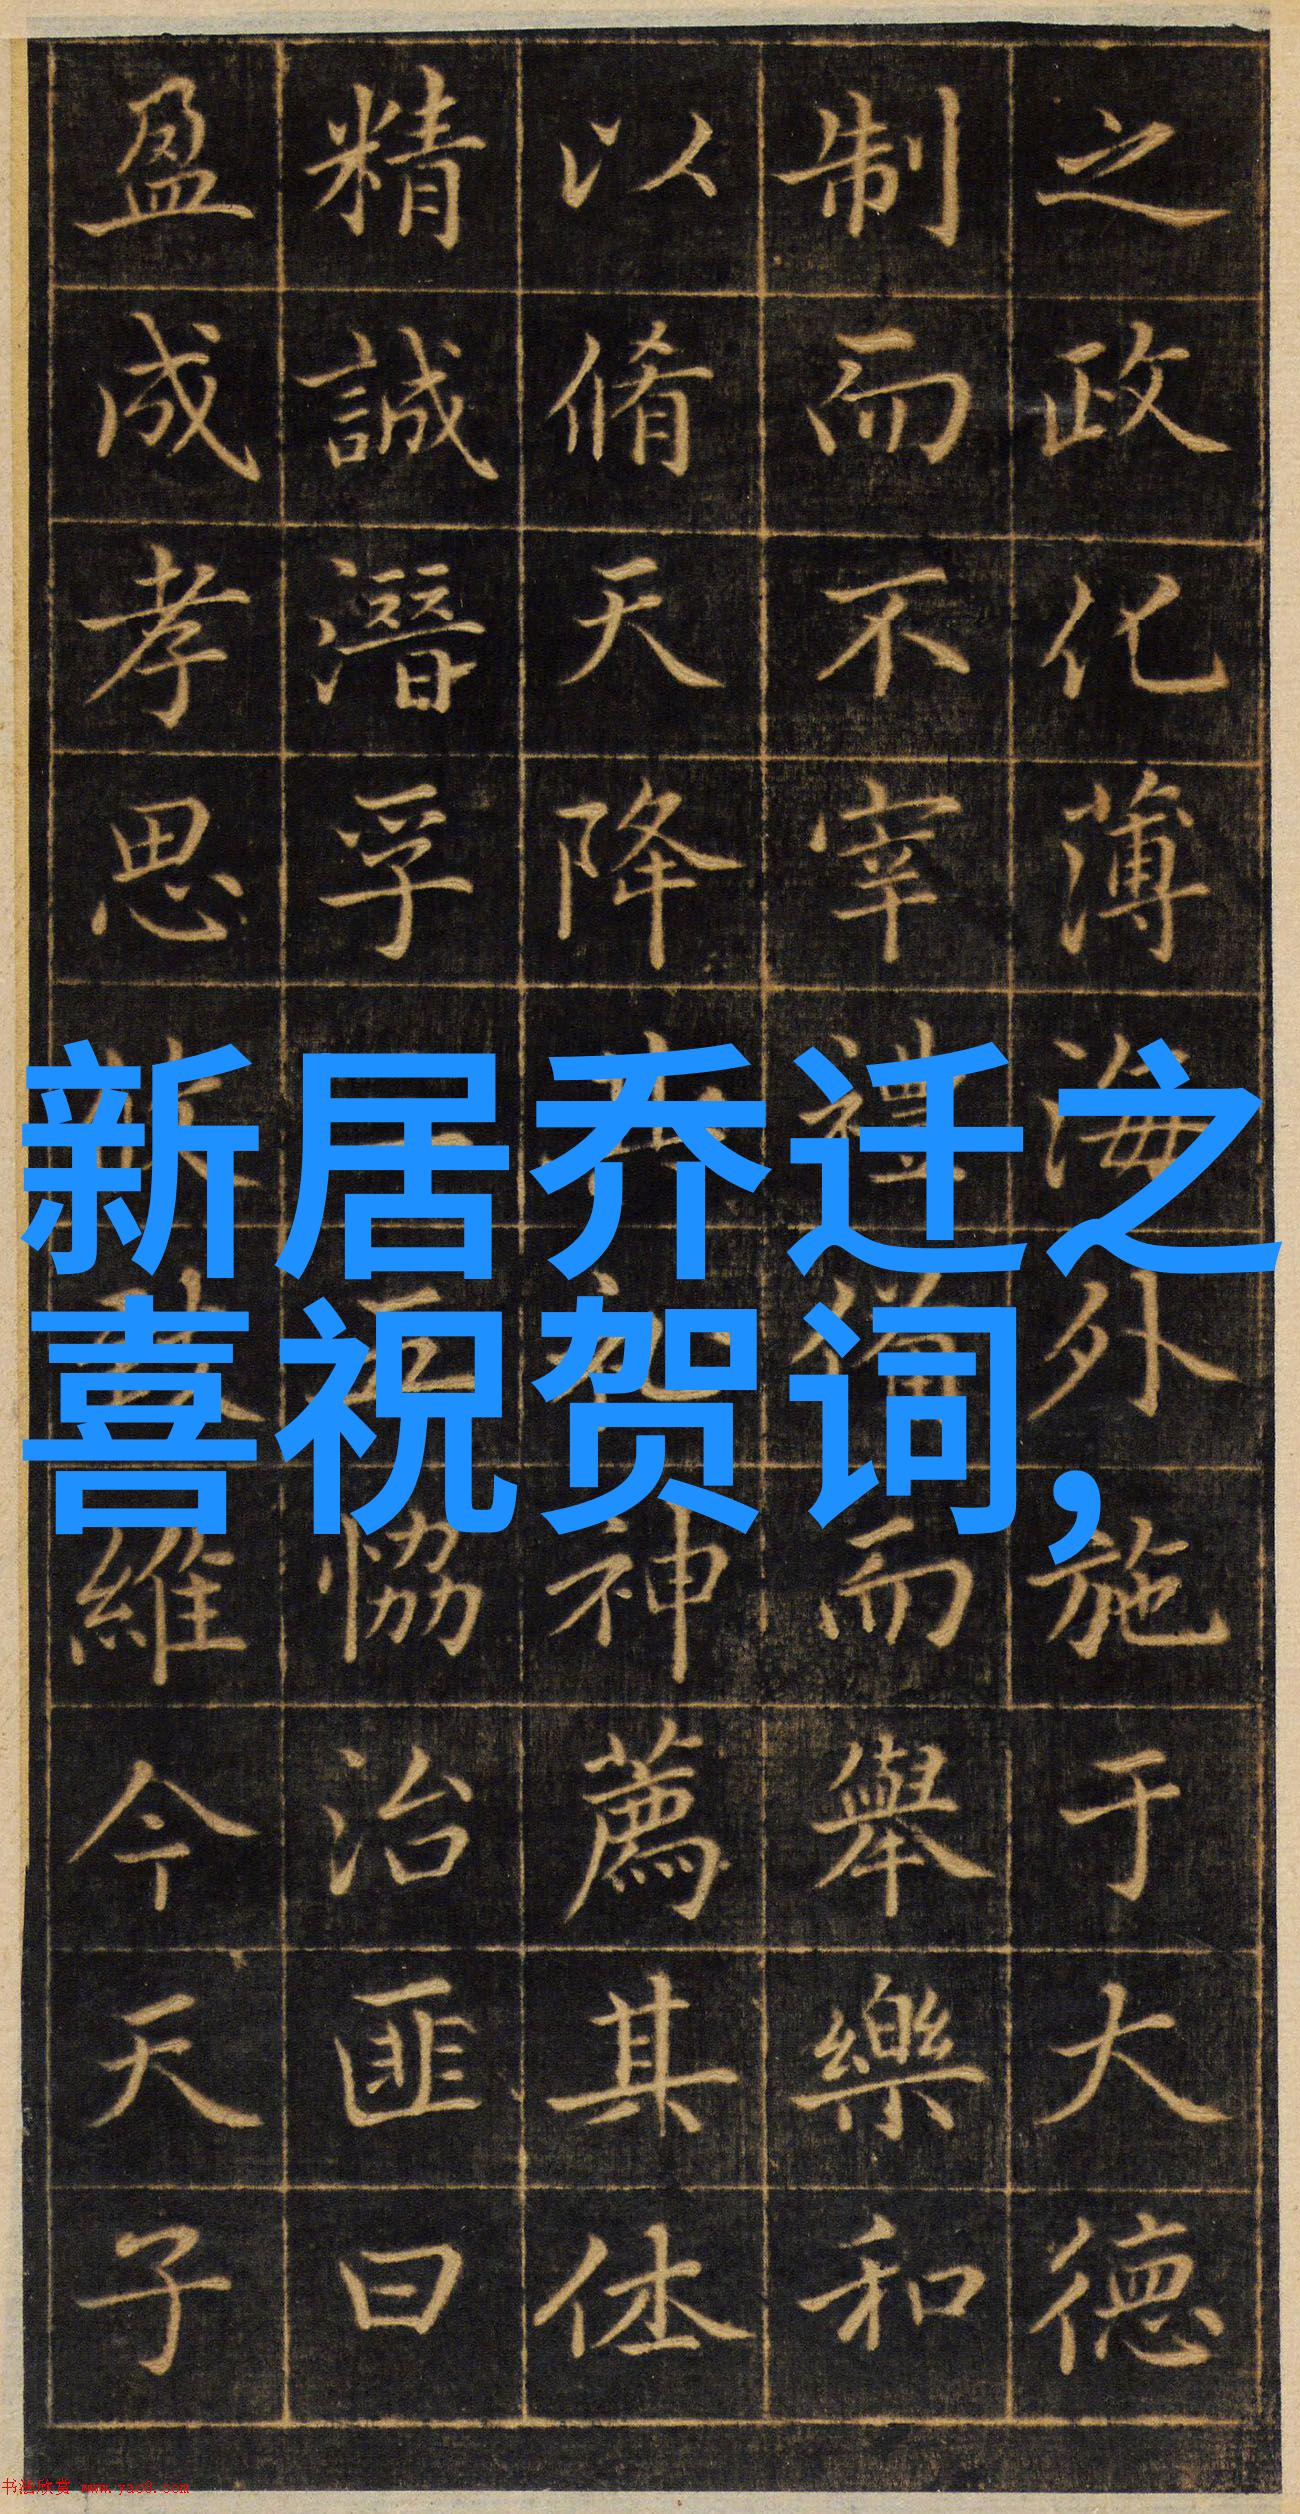 之政化薄海外施于大德
制而不宰禮備而舉樂和
以脩天降其神薦其休
精誠潛孚恊治匪曰
盈成孝思維今天子
新居乔迁之
喜祝贺词,
书法欣赏 www.yac8.com